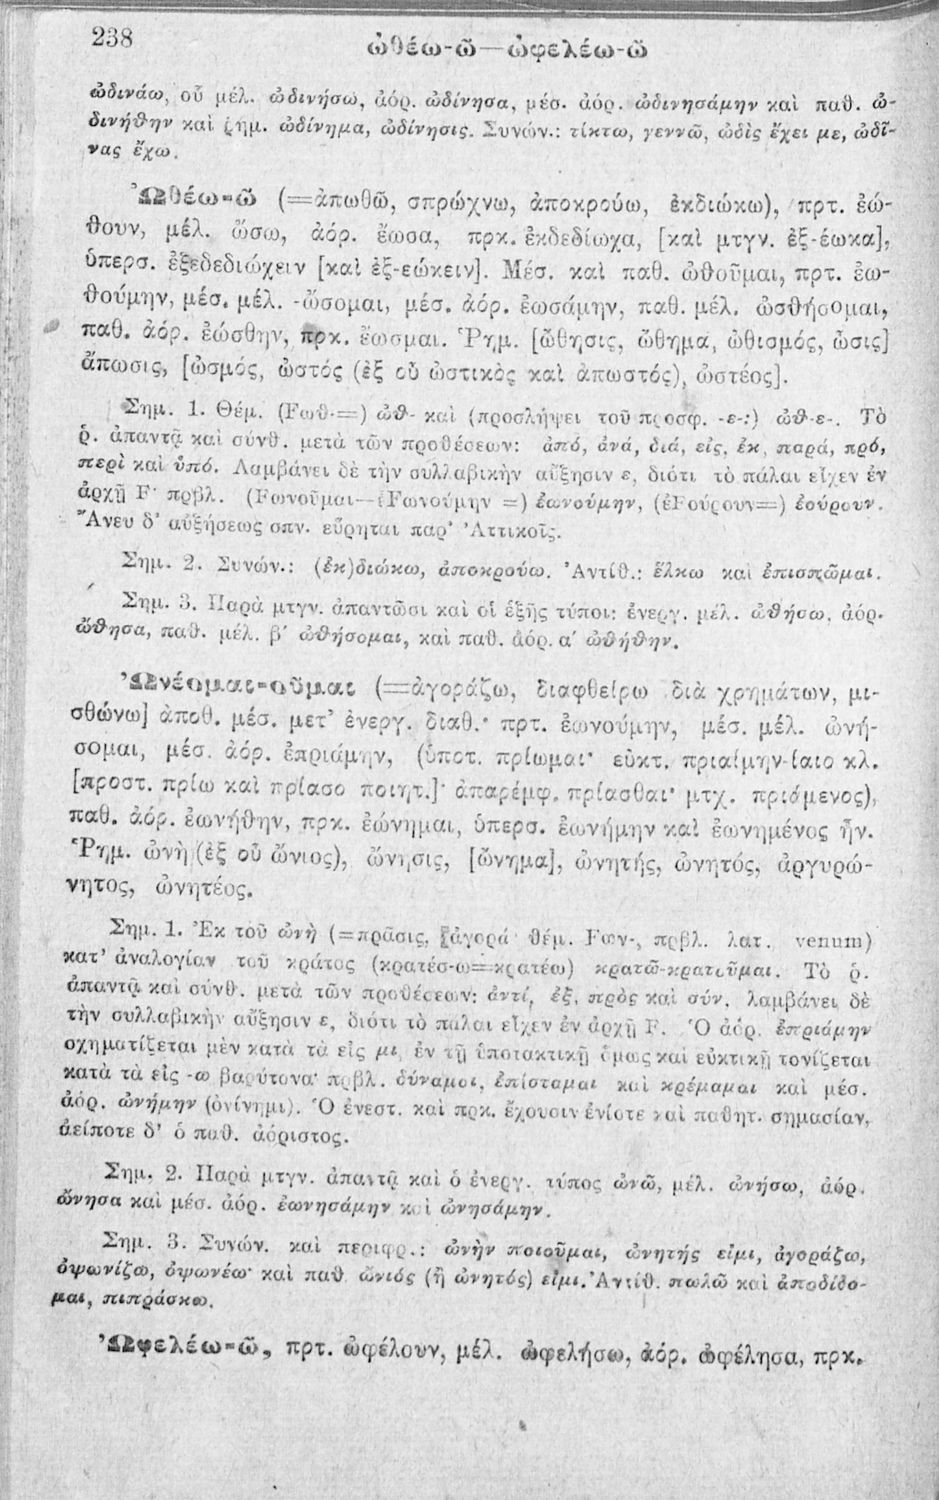 238
ὠθέω-ῶ—ὠφελέω-ῶ
ὠδινάω, οὗ μέλ. ὠδινήσω, ἀόρ. ὠδίνησα, μέσ. ἀόρ. ὠδινησάμην καὶ παθ. ὠ-
δινήθην καὶ ῥημ. ὠδίνημα, ὠδίνησις. Συνών.: τίκτω, γεννῶ, ὠδὶς ἔχει με, ὠδῖ-
νας ἔχω.
Ὠθέω-ῶ (=ἀπωθῶ, σπρώχνω, ἀποκρούω, ἐκδιώκω), πρτ. ἐώ-
θουν, μέλ. ὤσω, ἀόρ. ἔωσα, πρκ. ἐκδεδίωχα, [καὶ μτγν. ἐξ-έωκα],
ὑπερσ. ἐξεδεδιώχειν [καὶ ἐξ-εώκειν]. Μέσ. καὶ παθ. ὠθοῦμαι, πρτ. ἐω-
θούμην, μέσ. μέλ. -ὤσομαι, μέσ. ἀόρ. ἐωσάμην, παθ. μέλ. ὠσθήσομαι,
παθ. ἀόρ. ἐώσθην, πρκ. ἔωσμαι. Ῥημ. [ὤθησις, ὤθημα, ὠθισμός, ὦσις]
ἄπωσις, [ὠσμός, ὠστός (ἐξ οὗ ὠστικὸς καὶ ἀπωστός), ὠστέος].
Σημ. 1. Θέμ. (Fωθ-=) ὠθ- καὶ (προσλήψει τοῦ προσφ. -ε-:) ὠθ-ε-. Τὸ
ῥ. ἀπαντᾷ καὶ σύνθ. μετὰ τῶν προθέσεων: ἀπό, ἀνά, διά, εἰς, ἐκ, παρά, πρό,
περὶ καὶ ὑπό. Λαμβάνει δὲ τὴν συλλαβικὴν αὔξησιν ε, διότι τὸ πάλαι εἶχεν ἐν
ἀρχῇ F· πρβλ. (Fωνοῦμαι—ἐFωνούμην =) ἐωνούμην, (ἐFούρουν=) ἐούρουν.
Ἄνευ δ' αὐξήσεως σπν. εὕρηται παρ' Ἀττικοῖς.
Σημ. 2. Συνών.: (ἐκ)διώκω, ἀποκρούω. Ἀντίθ.: ἕλκω καὶ ἐπισπῶμαι.
Σημ. 3. Παρὰ μτγν. ἀπαντῶσι καὶ οἱ ἑξῆς τύποι: ἐνεργ. μέλ. ὠθήσω, ἀόρ.
ὤθησα, παθ. μέλ. β' ὠθήσομαι, καὶ παθ. ἀόρ. α' ὠθήθην.
Ὠνέομαι-οῦμαι (=ἀγοράζω, διαφθείρω διὰ χρημάτων, μι-
σθώνω] ἀποθ. μέσ. μετ' ἐνεργ. διαθ.· πρτ. ἐωνούμην, μέσ. μέλ. ὠνή-
σομαι, μέσ. ἀόρ. ἐπριάμην, (ὑποτ. πρίωμαι· εὐκτ. πριαίμην-ίαιο κλ.
[προστ. πρίω καὶ πρίασο ποιητ.]· ἀπαρέμφ. πρίασθαι· μτχ. πριάμενος),
παθ. ἀόρ. ἐωνήθην, πρκ. ἐώνημαι, ὑπερσ. ἐωνήμην καὶ ἐωνημένος ἦν.
Ῥημ. ὠνὴ (ἐξ οὗ ὤνιος), ὤνησις, [ὤνημα], ὠνητής, ὠνητός, ἀργυρώ-
νητος, ὠνητέος.
Σημ. 1. Ἐκ τοῦ ὠνὴ (=πρᾶσις, ἀγορά· θέμ. Fων-, πρβλ. λατ. venum)
κατ' ἀναλογίαν τοῦ κράτος (κρατέσ-ω=κρατέω) κρατῶ-κρατοῦμαι. Τὸ ῥ.
ἀπαντᾷ καὶ σύνθ. μετὰ τῶν προθέσεων: ἀντί, ἐξ, πρὸς καὶ σύν. λαμβάνει δὲ
τὴν συλλαβικὴν αὔξησιν ε, διότι τὸ πάλαι εἶχεν ἐν ἀρχῇ F. Ὁ ἀόρ. ἐπριάμην
σχηματίζεται μὲν κατὰ τὰ εἰς μι, ἐν τῇ ὑποτακτικῇ ὅμως καὶ εὐκτικῇ τονίζεται
κατὰ τὰ εἰς -ω βαρύτονα· πρβλ. δύναμαι, ἐπίσταμαι καὶ κρέμαμαι καὶ μέσ.
ἀόρ. ὠνήμην (ὀνίνημι). Ὁ ἐνεστ. καὶ πρκ. ἔχουσιν ἐνίοτε καὶ παθητ. σημασίαν,
ἀείποτε δ' ὁ παθ. ἀόριστος.
Σημ. 2. Παρὰ μτγν. ἀπαντᾷ καὶ ὁ ἐνεργ. τύπος ὠνῶ, μέλ. ὠνήσω, ἀόρ.
ὤνησα καὶ μέσ. ἀόρ. ἐωνησάμην καὶ ὠνησάμην.
Σημ. 3. Συνών. καὶ περιφρ.: ὠνὴν ποιοῦμαι, ὠνητής εἰμι, ἀγοράζω,
ὀψωνίζω, ὀψωνέω· καὶ παθ. ὤνιός (ἢ ὠνητός) εἰμι. Ἀντίθ. πωλῶ καὶ ἀποδίδο-
μαι, πιπράσκω.
Ὠφελέω-ῶ, πρτ. ὠφέλουν, μέλ. ὠφελήσω, ἀόρ. ὠφέλησα, πρκ.